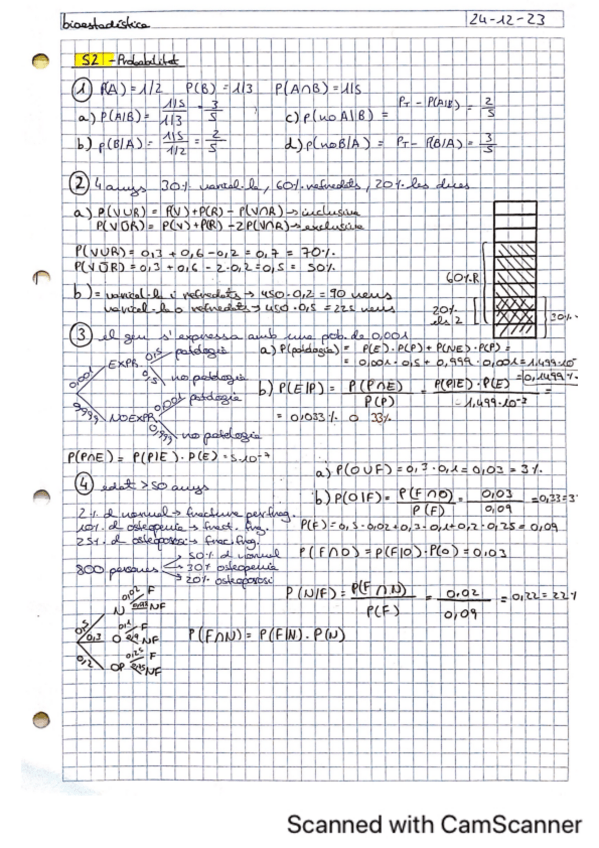 bioestadística
24-12-23
S2 - Probabilitat
① P(A) = 1/2 P(B) = 1/3 P(A∩B) = 1/5
a) P(A|B) = (1/5)/(1/3) = 3/5 c) P(no A|B) = PT - P(A|B) = 2/5
b) P(B/A) = (1/5)/(1/2) = 2/5 d) P(no B/A) = PT - P(B/A) = 3/5
② 4 anys 30% varicel·la, 60% refredats, 20% les dues
a) P(V∪R) = P(V) + P(R) - P(V∩R) → inclusiva
P(V∪R) = P(V) + P(R) - 2P(V∩R) → exclusiva
P(V∪R) = 0,3 + 0,6 - 0,2 = 0,7 = 70%
P(V∪R) = 0,3 + 0,6 - 2·0,2 = 0,5 = 50%
60% R
20% els 2
30%
b) = varicel·la i refredats → 450·0,2 = 90 nens
varicel·la o refredats → 450·0,5 = 225 nens
③ el gen s'expressa amb una prob. de 0,001
0,001 EXPR. 0,5 patologia
0,5 no patologia
0,999 NO EXPR 0,001 patologia
0,999 no patologia
a) P(patologia) = P(E)·P(P) + P(NE)·P(P) =
= 0,001·0,5 + 0,999·0,001 = 1,499·10⁻³
= 0,1499%
b) P(E|P) = P(P∩E)/P(P) = P(P|E)·P(E)/1,499·10⁻³ =
= 0,33% o 33%
P(P∩E) = P(P|E)·P(E) = 5·10⁻⁴
④ edat > 50 anys
2% d normal → fractura per frag.
10% d osteopenia → fract. frag.
25% d osteoporosi → frac. frag.
800 persones
50% d normal
30% osteopenia
20% osteoporosi
0,5 N 0,02 F
NF
0,3 O 0,1 F
0,9 NF
0,2 OP 0,25 F
0,75 NF
a) P(O∪F) = 0,3·0,1 = 0,03 = 3%
b) P(O|F) = P(F∩O)/P(F) = 0,03/0,09 = 0,33 = 3
P(F) = 0,5·0,02 + 0,3·0,1 + 0,2·0,25 = 0,09
P(F∩O) = P(F|O)·P(O) = 0,03
P(N/F) = P(F∩N)/P(F) = 0,02/0,09 = 0,22 = 22%
P(F∩N) = P(F|N)·P(N)
Scanned with CamScanner